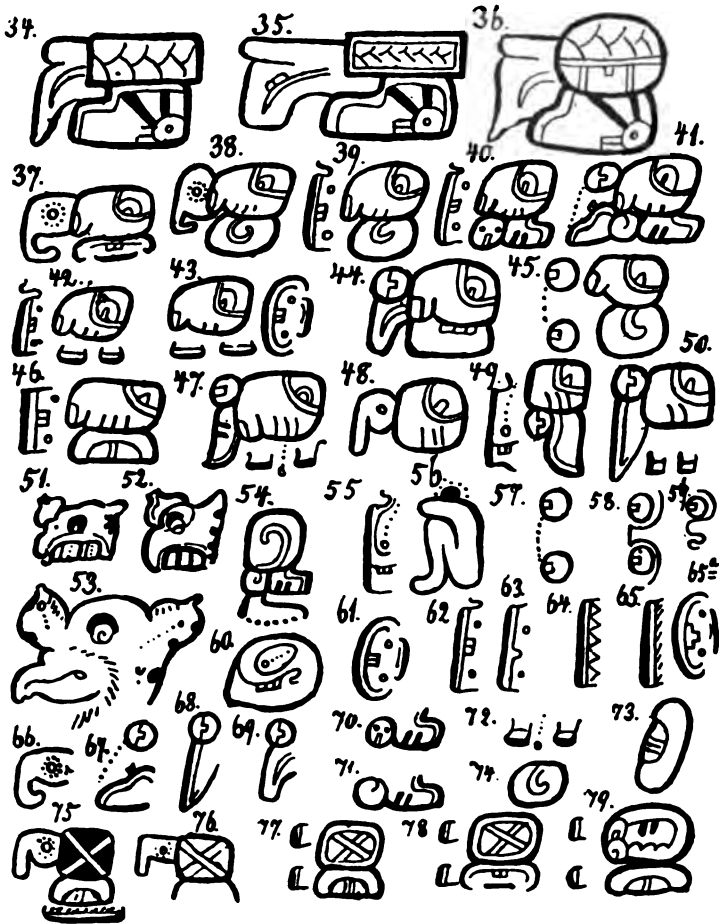 34. 35. 36.
37. 38. 39. 40. 41.
42. 43. 44. 45.
46. 47. 48. 49. 50.
51. 52. 54. 55 56. 57. 58. 59.
53. 65ª
60. 61. 62 63. 64. 65.
66. 67. 68. 69. 70. 72. 73.
71. 74.
75 76. 77. 78 79.